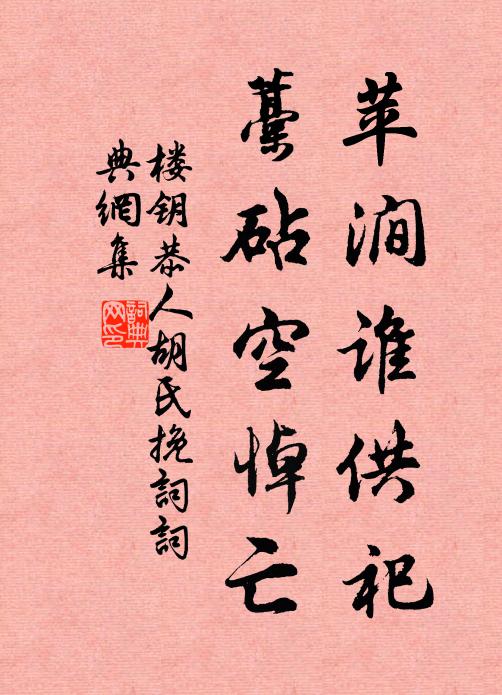 苹涧谁供祀
藁砧空悼亡
楼钥恭人胡氏挽词词
典网集
词典网印